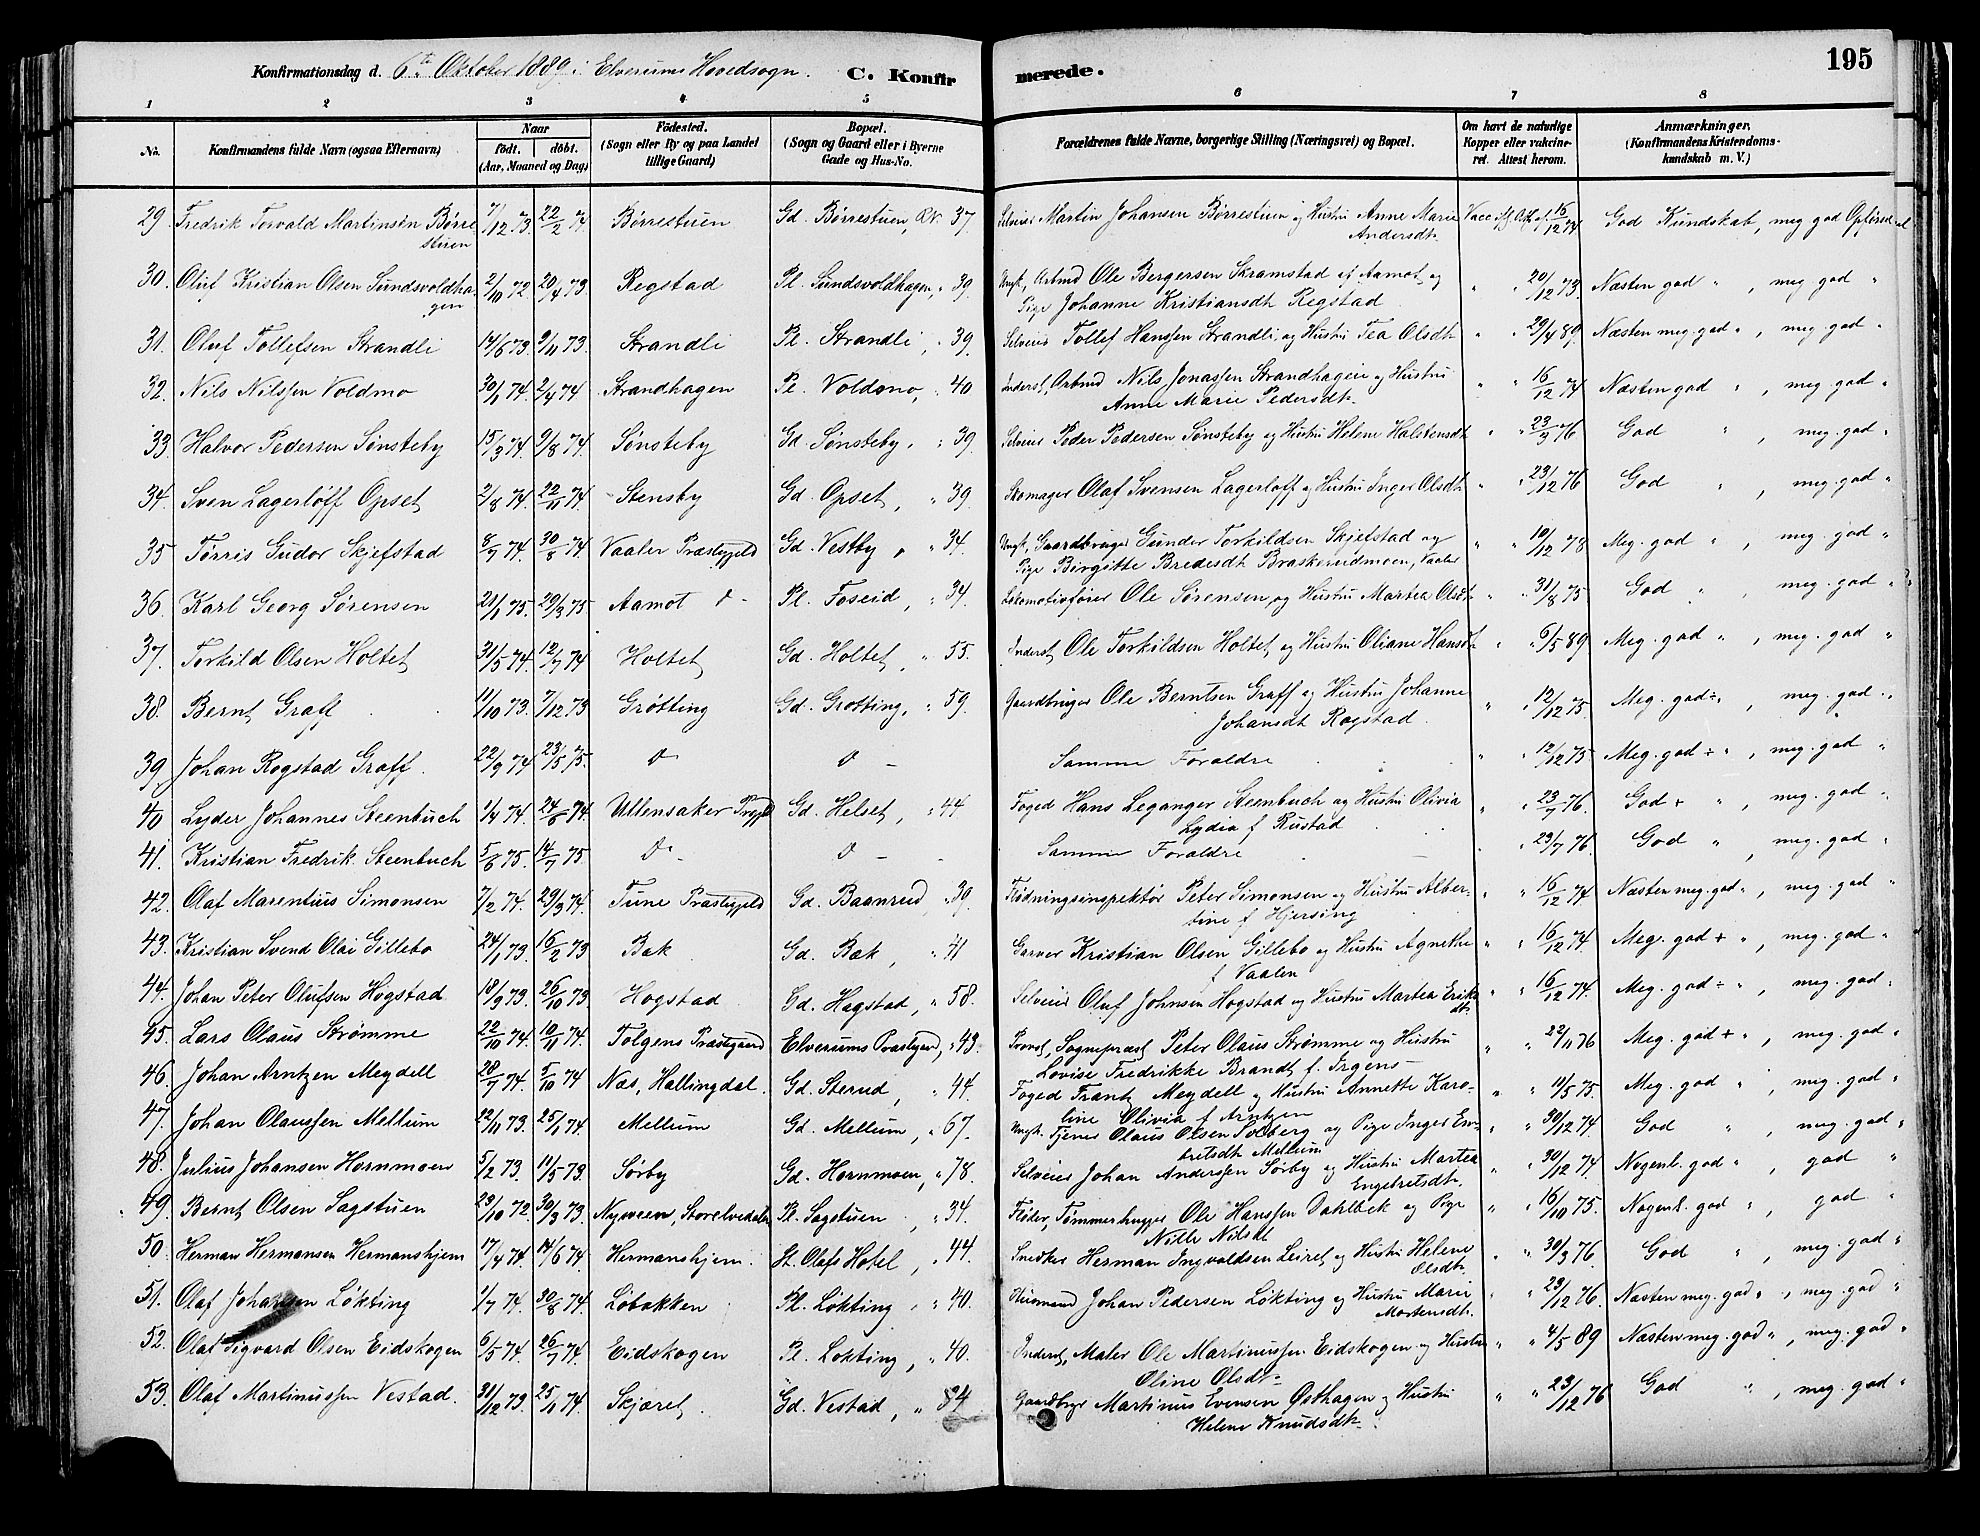 Konfirmationsdag d. 6te Oktober 1889 i Elverums Hovedsogn. C. Konfirmerede. 195
1 2 3 4 5 6 7 8
No. Konfirmandens fulde Navn (ogsaa Efternavn) Naar født. døbt. (Aar, Maaned og Dag) Fødested. (Sogn eller By og paa Landet tillige Gaard) Bopæl. (Sogn og Gaard eller i Byerne Gade og Hus-No. Forældrenes fulde Navne, borgerlige Stilling (Næringsvei) og Bopæl. Om havt de naturlige Kopper eller vakcineret. Attest herom. Anmærkninger. (Konfirmandens Kristendomskundskab m. V.)
29. Fredrik Torvald Martinsen Børrestuen 7/12 73. 22/2 74. Børrestuen Gd. Børrestuen, RN. 37. Selveier Martin Johansen Børrestuen og Hustru Anne Marie Andersdt. Vacc. 15/12 74 God Kundskab, meg god Opførsel
30. Oluf Kristian Olsen Sundsvoldhagen 2/10 72 20/4 73. Regstad Pl. Sundsvoldhagen, " 39. Ungk., Arbmd Ole Bergersen Skramstad af Aamot, og Pige Johanne Kristiansdt Regstad " " 20/12 73. Næsten god " , meg god "
31. Oluf Tollefsen Strandli 14/6 73 9/11 73. Strandli Pl. Strandli, " 39. Selveier Tollef Hanssen Strandli og Hustru Tea Olsdt " " 29/4 89. Næsten meg. god " , meg. god "
32. Nils Nilssen Voldmo 30/1 74. 2/4 74 Strandhagen Pl. Voldmo, " 40 Inderst, Arbmd Nils Jonassen Strandhagen og Hustru Anne Marie Pedersdt. " " 16/12 74 Næsten god " , meg. god "
33. Halvor Pedersen Sønsteby 15/3 74. 9/8 74. Sønsteby Gd. Sønsteby, " 39. Selveier Peder Pedersen Sønsteby og Hustru Helene Halstensdt " " 23/7 76 God " , meg. god "
34. Sven Lagerløff Opset 2/8 74. 22/11 74. Stensby Gd. Opset, " 39 Skomager Olaf Svensen Lagerløff og Hustru Inger Olsdt " " 23/12 76 God " , meg. god "
35 Tørris Gudor Skjefstad 8/7 74. 30/8 74. Vaaler Præstegjeld Gd. Vestby, " 34. Ungk., Gaardbruger Gunder Torkildsen Skjefstad og Pige Birgitte Bredesdt Braskereidmoen, Vaaler " " 10/12 78 Meg. god " , meg. god "
36. Karl Georg Sørensen 21/1 75. 29/3 75 Aamot do Pl. Foseid, " 34. Lokomotivfører Ole Sørensen og Hustru Martea Olsdt " " 31/8 75 God " , meg. god "
37. Torkild Olsen Holtet 31/5 74. 12/7 74 Holtet Gd. Holtet, " 55. Inderst Ole Torkildsen Holtet og Hustru Oliane Hansdt " " 6/5 89 Meg. god " , meg. god "
38. Bernt Graff 11/10 73. 7/12 73 Grøtting Gd. Grøtting, " 59. Gaardbruger Ole Berntsen Graff og Hustru Johanne Johansdt Rogstad. " " 12/12 75. Meg. god ÷ " , meg. god "
39. Johan Rogstad Graff. 22/9 74 23/5 75. do do - Samme Forældre " " 12/12 75 Meg. god ÷ " , meg. god "
40 Lyder Johannes Steenbuch 1/4 74. 24/6 74. Ullensaker Prgjld Gd. Helset, " 44 Foged Hans Leganger Steenbuch og Hustru Olivia Lydia f. Rustad " " 23/7 76. God + " , meg. god "
41. Kristian Fredrik Steenbuch 5/6 75. 14/7 75 do - do - Samme Forældre " " 23/7 76. God " , meg. god "
42. Olaf Marentius Simonsen 7/2 74. 29/3 74. Tune Præstegjeld Gd. Baanrud, " 39. Flødningsinspektør Peter Simonsen og Hustru Albertine f. Hjersing " " 16/12 74 Næsten meg. god " , meg. god "
43. Kristian Svend Olai Gillebo 24/1 73. 16/2 73 Bæk Gd. Bæk, " 41 Garver Kristian Olsen Gillebo og Hustru Agnethe f. Vaalen " " 16/12 74. Meg. god ÷ " , meg. god "
44. Johan Peter Olufsen Hogstad 18/9 73. 26/10 73 Hogstad Gd. Hagstad, " 58. Selveier Oluf Johnsen Hogstad og Hustru Martea Eriksdt. " " 16/12 74. Meg. god ÷ " , meg. god "
45. Lars Olaus Strømme 22/10 74. 10/11 74. Tolgens Præstegaard Elverums Præstegrd, " 43. Provst, Sognepræst Peter Olaus Strømme og Hustru Lovise Fredrikke Brandt f. Irgens " " 22/11 76 Meg. god + " , meg. god "
46. Johan Arntzen Meydell 28/7 74. 5/10 74 Næs, Hallingdal. Gd. Sterud, " 44. Foged Frantz Meydell og Hustru Annette Karoline Olivia f. Arntzen " " 11/5 75. Meg. god " , meg. god "
47. Johan Olaussen Mellum 22/11 73. 25/1 74. Mellum Gd. Mellum, " 67. Ungk. Tjener Olaus Olsen Solberg og Pige Inger Embretsdt Mellum " " 30/12 74. God " , meg. god "
48. Julius Johansen Hornmoen 5/2 73 11/5 73. Sørby Gd. Hornmoen, " 78. Selveier Johan Anderssen Sørby og Hustru Martea Engebretsdt. " " 30/12 74. Nogenl. god " , god "
49. Bernt Olsen Sagstuen 23/10 72. 30/3 73. Nyveen, Storelvedalen Pl. Sagstuen, " 34. Fløder, Tømmerhugger Ole Hanssen Dahlbæk og Pige Nille Nilsdt " " 16/10 75. Nogenl. god " , god "
50. Herman Hermansen Hermanshjem 17/4 74. 14/6 74. Hermanshjem. St. Olafs Hotel, " 44. Snedker Herman Ingvaldsen Leiret og Hustru Helene Olsdt. " " 30/3 76. God " , meg. god "
51. Olaf Johansen Løkting 1/7 74. 30/8 74. Løbakken Pl. Løkting, " 40. Husmand Johan Pedersen Løkting og Hustru Marie Mortensdt. " " 23/12 76. Næsten meg. god " , meg. god "
52. Olaf Sigvard Olsen Eidskogen 6/5 74. 26/7 74. Eidskogen Pl. Løkting, " 40. Inderst, Maler Ole Martinussen Eidskogen og Hustru Oline Olsdt. " " 4/5 89 Næsten meg. god " , meg. god "
53. Olaf Martinussen Vestad. 31/12 73. 25/1 74. Skjæret Gd. Vestad, " 84 Gaardbrgr Martinus Evensen Østhagen og Hustru Helene Knudsdt. " " 23/12 76 God " , meg. god "